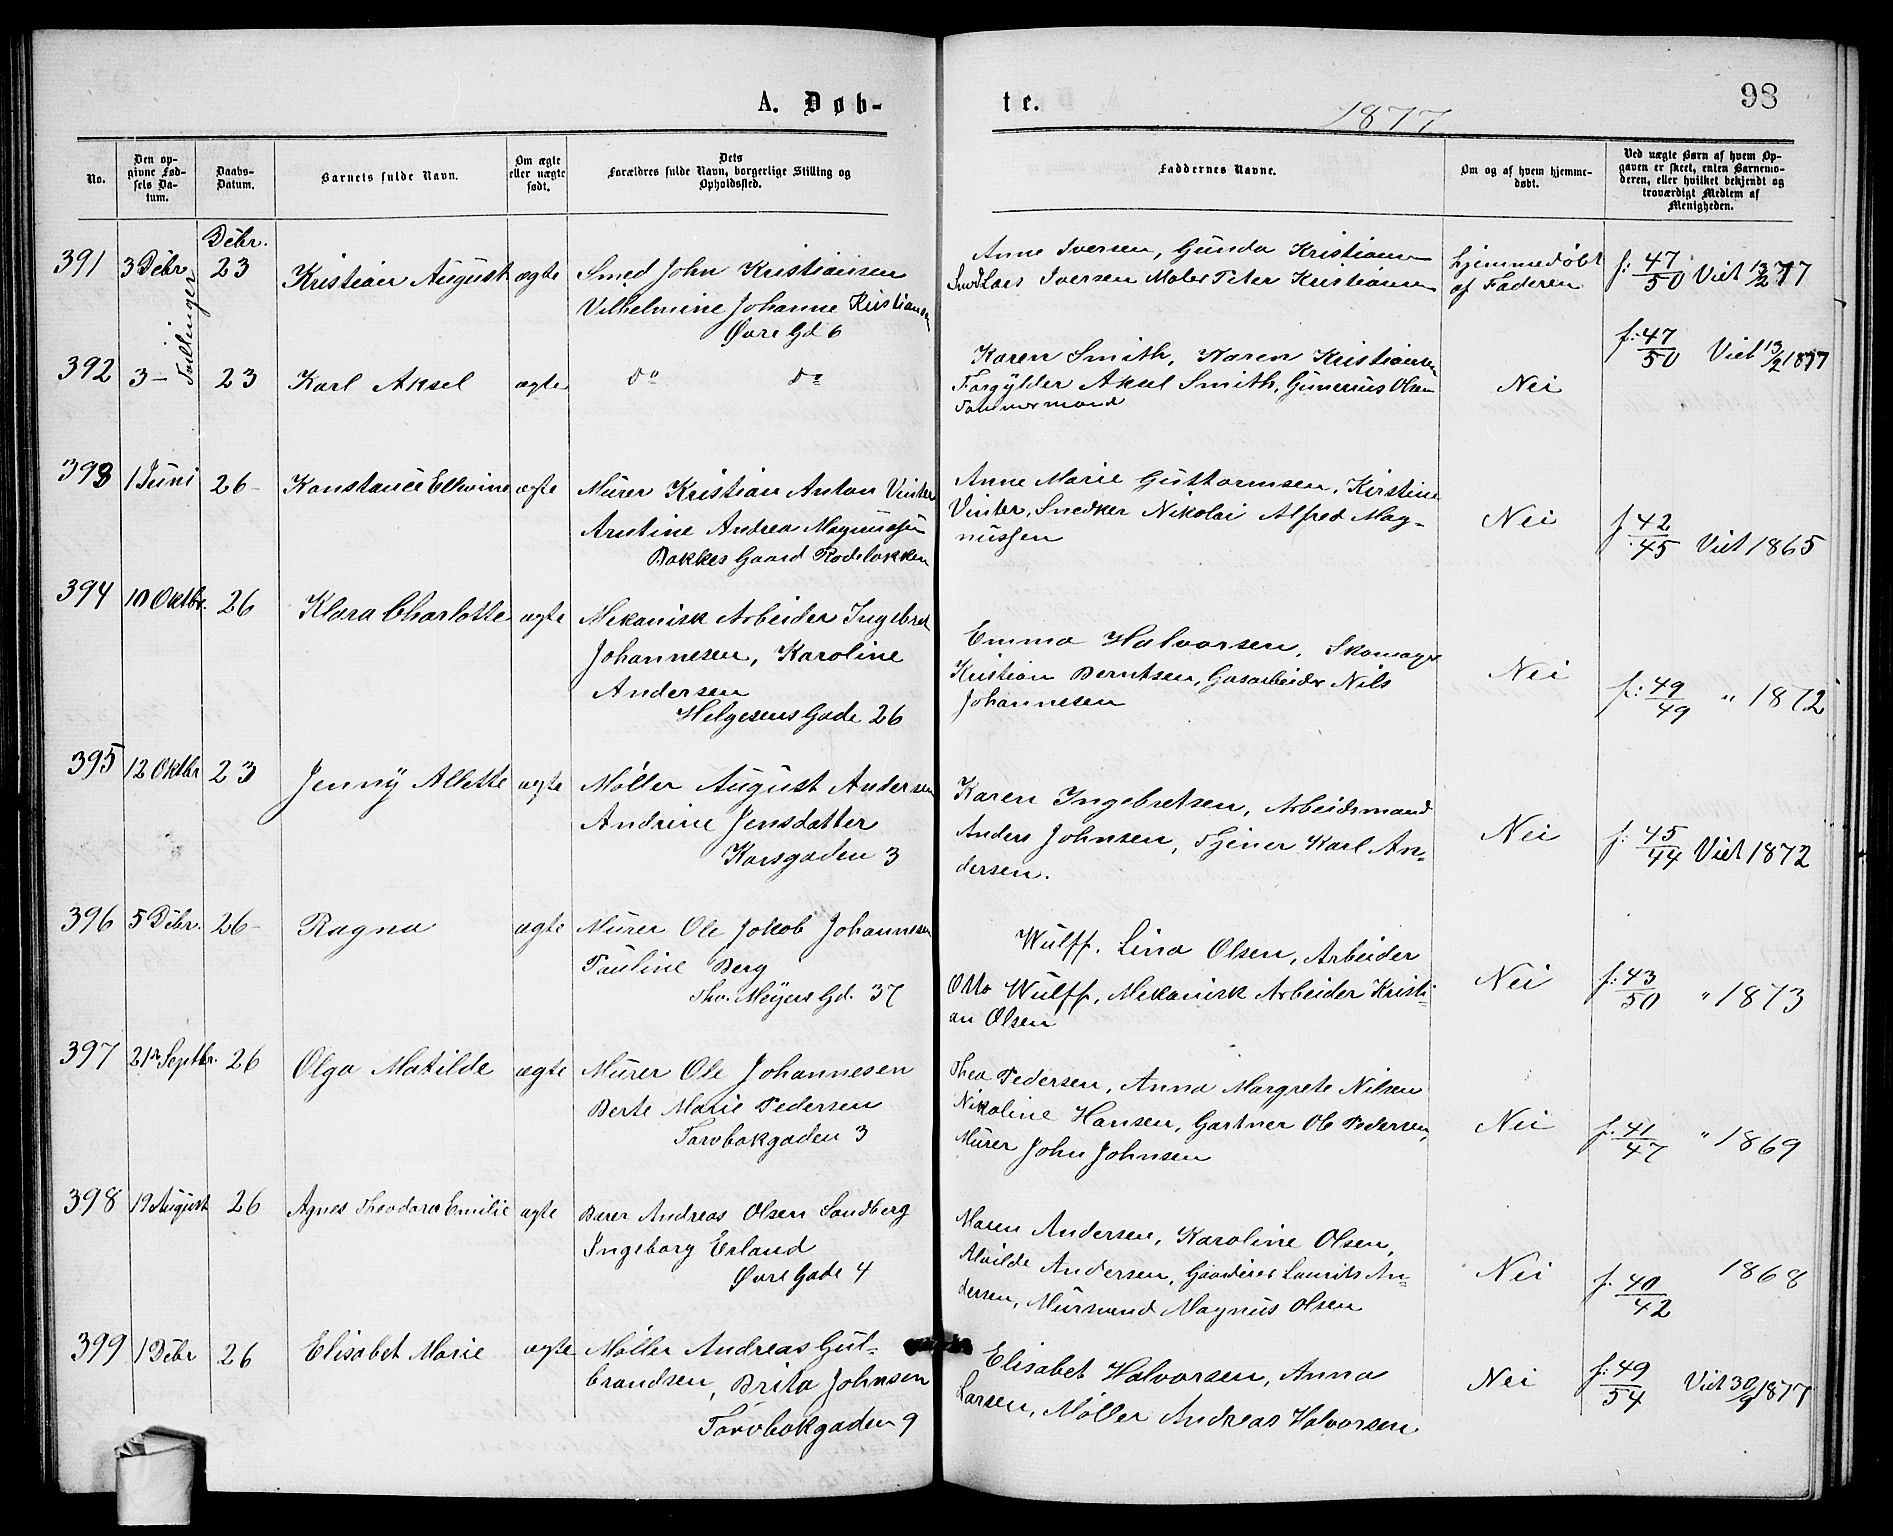 A. Døb-
te.
1877
98
No.
Den op-
givne Fød-
sels Da-
tum.
Daabs-
Datum.
Barnets fulde Navn.
Om ægte
eller uægte
født.
Dets
Forældres fulde Navn, borgerlige Stilling og
Opholdssted.
Faddernes Navne.
Om og af hvem hjemme-
døbt.
Ved uægte Børn af hvem Op-
gaven er skeet, enten Barnemo-
deren, eller hvilket bekjendt og
troværdigt Medlem af
Menigheden.
Debr.
391 3 Debr 23 Kristian August ægte Smed John Kristiansen
Vilhelmine Johanne Kristiansen
Øvre Gd 6
Tvillinger
Anne Iversen, Gunda Kristiansen
Lars Iversen Maler Peter Kristiansen
hjemmedøbt
af Faderen
f: 47/50 Viet 13/2 77
392 3 – 23 Karl Aksel ægte do do
Karen Smith, Karen Kristiansen
Forgylder Aksel Smith, Gunerius Olsen
Tømmermand
Nei
f: 47/50 Viet 13/2 1877
393 1 Juni 26 – Konstance Ellevine ægte Murer Kristian Anton Vinter
Arntine Andrea Magnussen
Bakkes Gaard Rodeløkken
Anne Marie Guttormsen, Kirstine
Vinter, Snedker Nikolai Alfred Mag-
nussen
Nei
f: 42/45 Viet 1865
394 10 Oktbr. 26 Klara Charlotte ægte Mekanisk Arbeider Ingebret
Johannesen, Karoline
Andersen
Helgesens Gade 26
Emma Halvorsen, Skomager
Kristian Berntsen, Gasarbeider Nils
Johannesen
Nei
f: 49/49 " 1872
395 12 Oktbr 23 Jenny Allette ægte Møller August Andersen
Andrine Jensdatter
Korsgaden 3
Karen Ingebretsen, Arbeidsmand
Anders Johnsen, Tjener Karl An-
dersen.
Nei
f: 45/44 Viet 1872
396 5 Debr. 26 – Ragna ægte Murer Ole Jakob Johannesen
Pauline Berg
Thv. Meyers Gd. 37
Wulff. Lina Olsen, Arbeider
Otto Wulff, Mekanisk Arbeider Kristi-
an Olsen
Nei
f: 43/50 " 1873
397 21 Septbr. 26 Olga Matilde ægte Murer Ole Johannesen
Berte Marie Pedersen
Torvbakgaden 3
Thea Pedersen, Anna Margrete Nilsen
Nikoline Hansen, Gartner Ole Pedersen,
Murer John Johnsen
Nei
f. 41/47 " 1869
398 19 August 26 Agnes Theodora Emilie ægte Bærer Andreas Olsen Sandberg
Ingeborg Erland
Øvre Gade 4
Maren Andersen, Karoline Olsen,
Alvilde Andersen, Laurits An-
dersen, Mursvend Magnus Olsen
Nei
f. 40/42 1868
399 1 Debr 26 Elisabet Marie ægte Møller Andreas Gul-
brandsen, Brita Johnsen
Torvbakgaden 9
Elisabet Halvorsen, Anna
Larsen, Møller Andreas Halvorsen
Nei
f: 49/54 Viet 30/9 1877